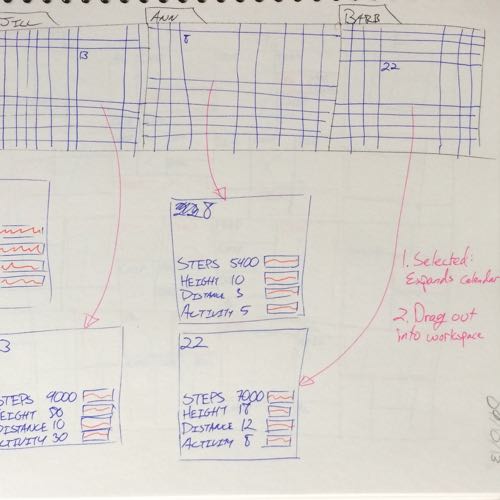 JILL
ANN
BARB
13
8
22
8
STEPS 5400
HEIGHT 10
DISTANCE 3
ACTIVITY 5
1. Selected:
Expands calendar
2. Drag out
into workspace
3
STEPS 9000
HEIGHT 50
DISTANCE 10
ACTIVITY 30
22
STEPS 7000
HEIGHT 18
DISTANCE 12
ACTIVITY 8